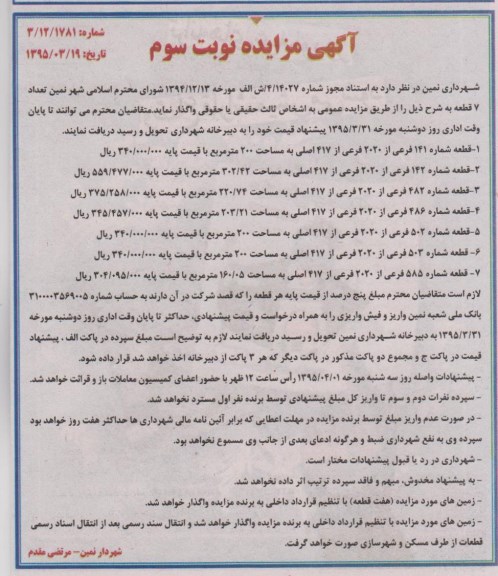 شماره: ۳/۱۲/۱۷۸۱
تاریخ: ۱۳۹۵/۰۳/۱۹
آگهی مزایده نوبت سوم
شـهرداری نمین در نظر دارد به استناد مجوز شماره ۴/۱۴۰۲۷/ش الف مورخه ۱۳۹۴/۱۲/۱۳ شورای محترم اسلامی شهر نمین تعداد
۷ قطعه به شرح ذیل را از طریق مزایده عمومی به اشخاص ثالث حقیقی یا حقوقی واگذار نماید.متقاضیان محترم می توانند تا پایان
وقت اداری روز دوشنبه مورخه ۱۳۹۵/۳/۳۱ پیشنهاد قیمت خود را به دبیرخانه شهرداری تحویل و رسید دریافت نمایند.
۱-قطعه شماره ۱۴۱ فرعی از ۲۰۲۰ فرعی از ۴۱۷ اصلی به مساحت ۲۰۰ مترمربع با قیمت پایه ۳۴۰/۰۰۰/۰۰۰ ریال
۲-قطعه شماره ۱۴۲ فرعی از ۲۰۲۰ فرعی از ۴۱۷ اصلی به مساحت ۳۰۲/۴۲ مترمربع با قیمت پایه ۵۵۹/۴۷۷/۰۰۰ ریال
۳-قطعه شماره ۴۸۲ فرعی از ۲۰۲۰ فرعی از ۴۱۷ اصلی به مساحت ۲۲۰/۷۴ مترمربع با قیمت پایه ۳۷۵/۲۵۸/۰۰۰ ریال
۴-قطعه شماره ۴۸۶ فرعی از ۲۰۲۰ فرعی از ۴۱۷ اصلی به مساحت ۲۰۳/۲۱ مترمربع با قیمت پایه ۳۴۵/۴۵۷/۰۰۰ ریال
۵-قطعه شماره ۵۰۲ فرعی از ۲۰۲۰ فرعی از ۴۱۷ اصلی به مساحت ۲۰۰ مترمربع با قیمت پایه ۳۴۰/۰۰۰/۰۰۰ ریال
۶- قطعه شماره ۵۰۳ فرعی از ۲۰۲۰ فرعی از ۴۱۷ اصلی به مساحت ۲۰۰ مترمربع با قیمت پایه ۳۴۰/۰۰۰/۰۰۰ ریال
۷- قطعه شماره ۵۸۵ فرعی از ۲۰۲۰ فرعی از ۴۱۷ اصلی به مساحت ۱۶۰/۰۵ مترمربع با قیمت پایه ۳۰۴/۰۹۵/۰۰۰ ریال
لازم است متقاضیان محترم مبلغ پنج درصد از قیمت پایه هر قطعه را که قصد شرکت در آن دارند به حساب شماره ۳۱۰۰۰۰۳۵۶۹۰۰۵
بانک ملی شعبه نمین واریز و فیش واریزی را به همراه درخواست و قیمت پیشنهادی، حداکثر تا پایان وقت اداری روز دوشنبه مورخه
۱۳۹۵/۳/۳۱ به دبیرخانه شـهرداری نمین تحویل و رسـید دریافت نمایند لازم به توضیح اسـت مبلغ سپرده در پاکت الف ، پیشنهاد
قیمت در پاکت ج و مجموع دو پاکت مذکور در پاکت دیگر که هر ۳ پاکت از دبیرخانه اخذ خواهد شد قرار داده شود.
- پیشنهادات واصله روز سه شنبه مورخه ۱۳۹۵/۰۴/۰۱ رأس ساعت ۱۲ ظهر با حضور اعضای کمیسیون معاملات باز و قرائت خواهد شد.
- سپرده نفرات دوم و سوم تا واریز کل مبلغ پیشنهادی توسط برنده نفر اول مسترد نخواهد شد.
- در صورت عدم واریز مبلغ توسط برنده مزایده در مهلت اعطایی که برابر آئین نامه مالی شهرداری ها حداکثر هفت روز خواهد بود
سپرده وی به نفع شهرداری ضبط و هرگونه ادعای بعدی از جانب وی مسموع نخواهد بود.
- شهرداری در رد یا قبول پیشنهادات مختار است.
- به پیشنهاد مخدوش، مبهم و فاقد سپرده ترتیب اثر داده نخواهد شد.
- زمین های مورد مزایده (هفت قطعه) با تنظیم قرارداد داخلی به برنده مزایده واگذار خواهد شد.
- زمین های مورد مزایده با تنظیم قرارداد داخلی به برنده مزایده واگذار خواهد شد و انتقال سند رسمی بعد از انتقال اسناد رسمی
قطعات از طرف مسکن و شهرسازی صورت خواهد گرفت.
شهردار نمین- مرتضی مقدم